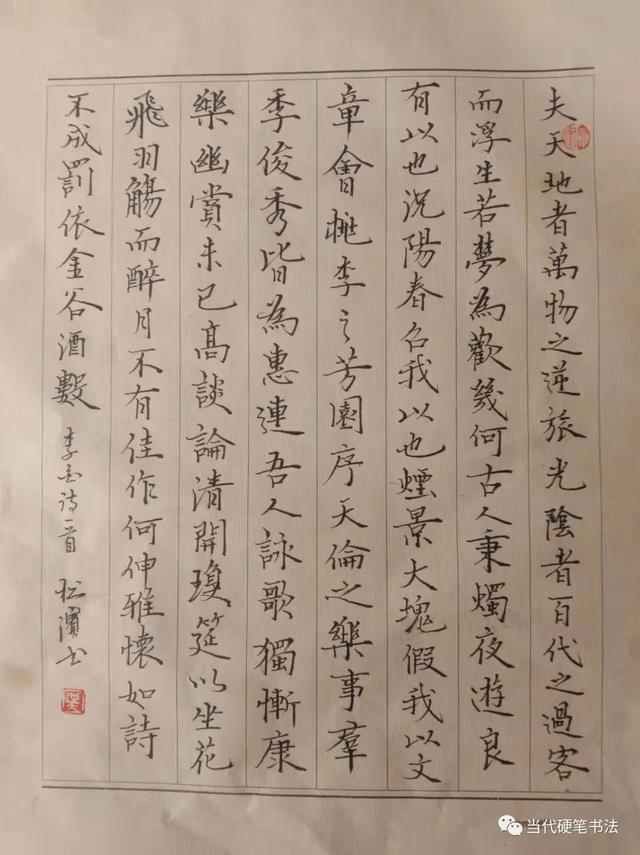 夫天地者萬物之逆旅光陰者百代之過客
而浮生若夢為歡幾何古人秉燭夜遊良
有以也況陽春召我以也煙景大塊假我以文
章會桃李之芳園序天倫之樂事羣
季俊秀皆為惠連吾人詠歌獨慚康
樂幽賞未已高談論清開瓊筵以坐花
飛羽觴而醉月不有佳作何伸雅懷如詩
不成罰依金谷酒數 李白诗一首 松濱书
当代硬笔书法